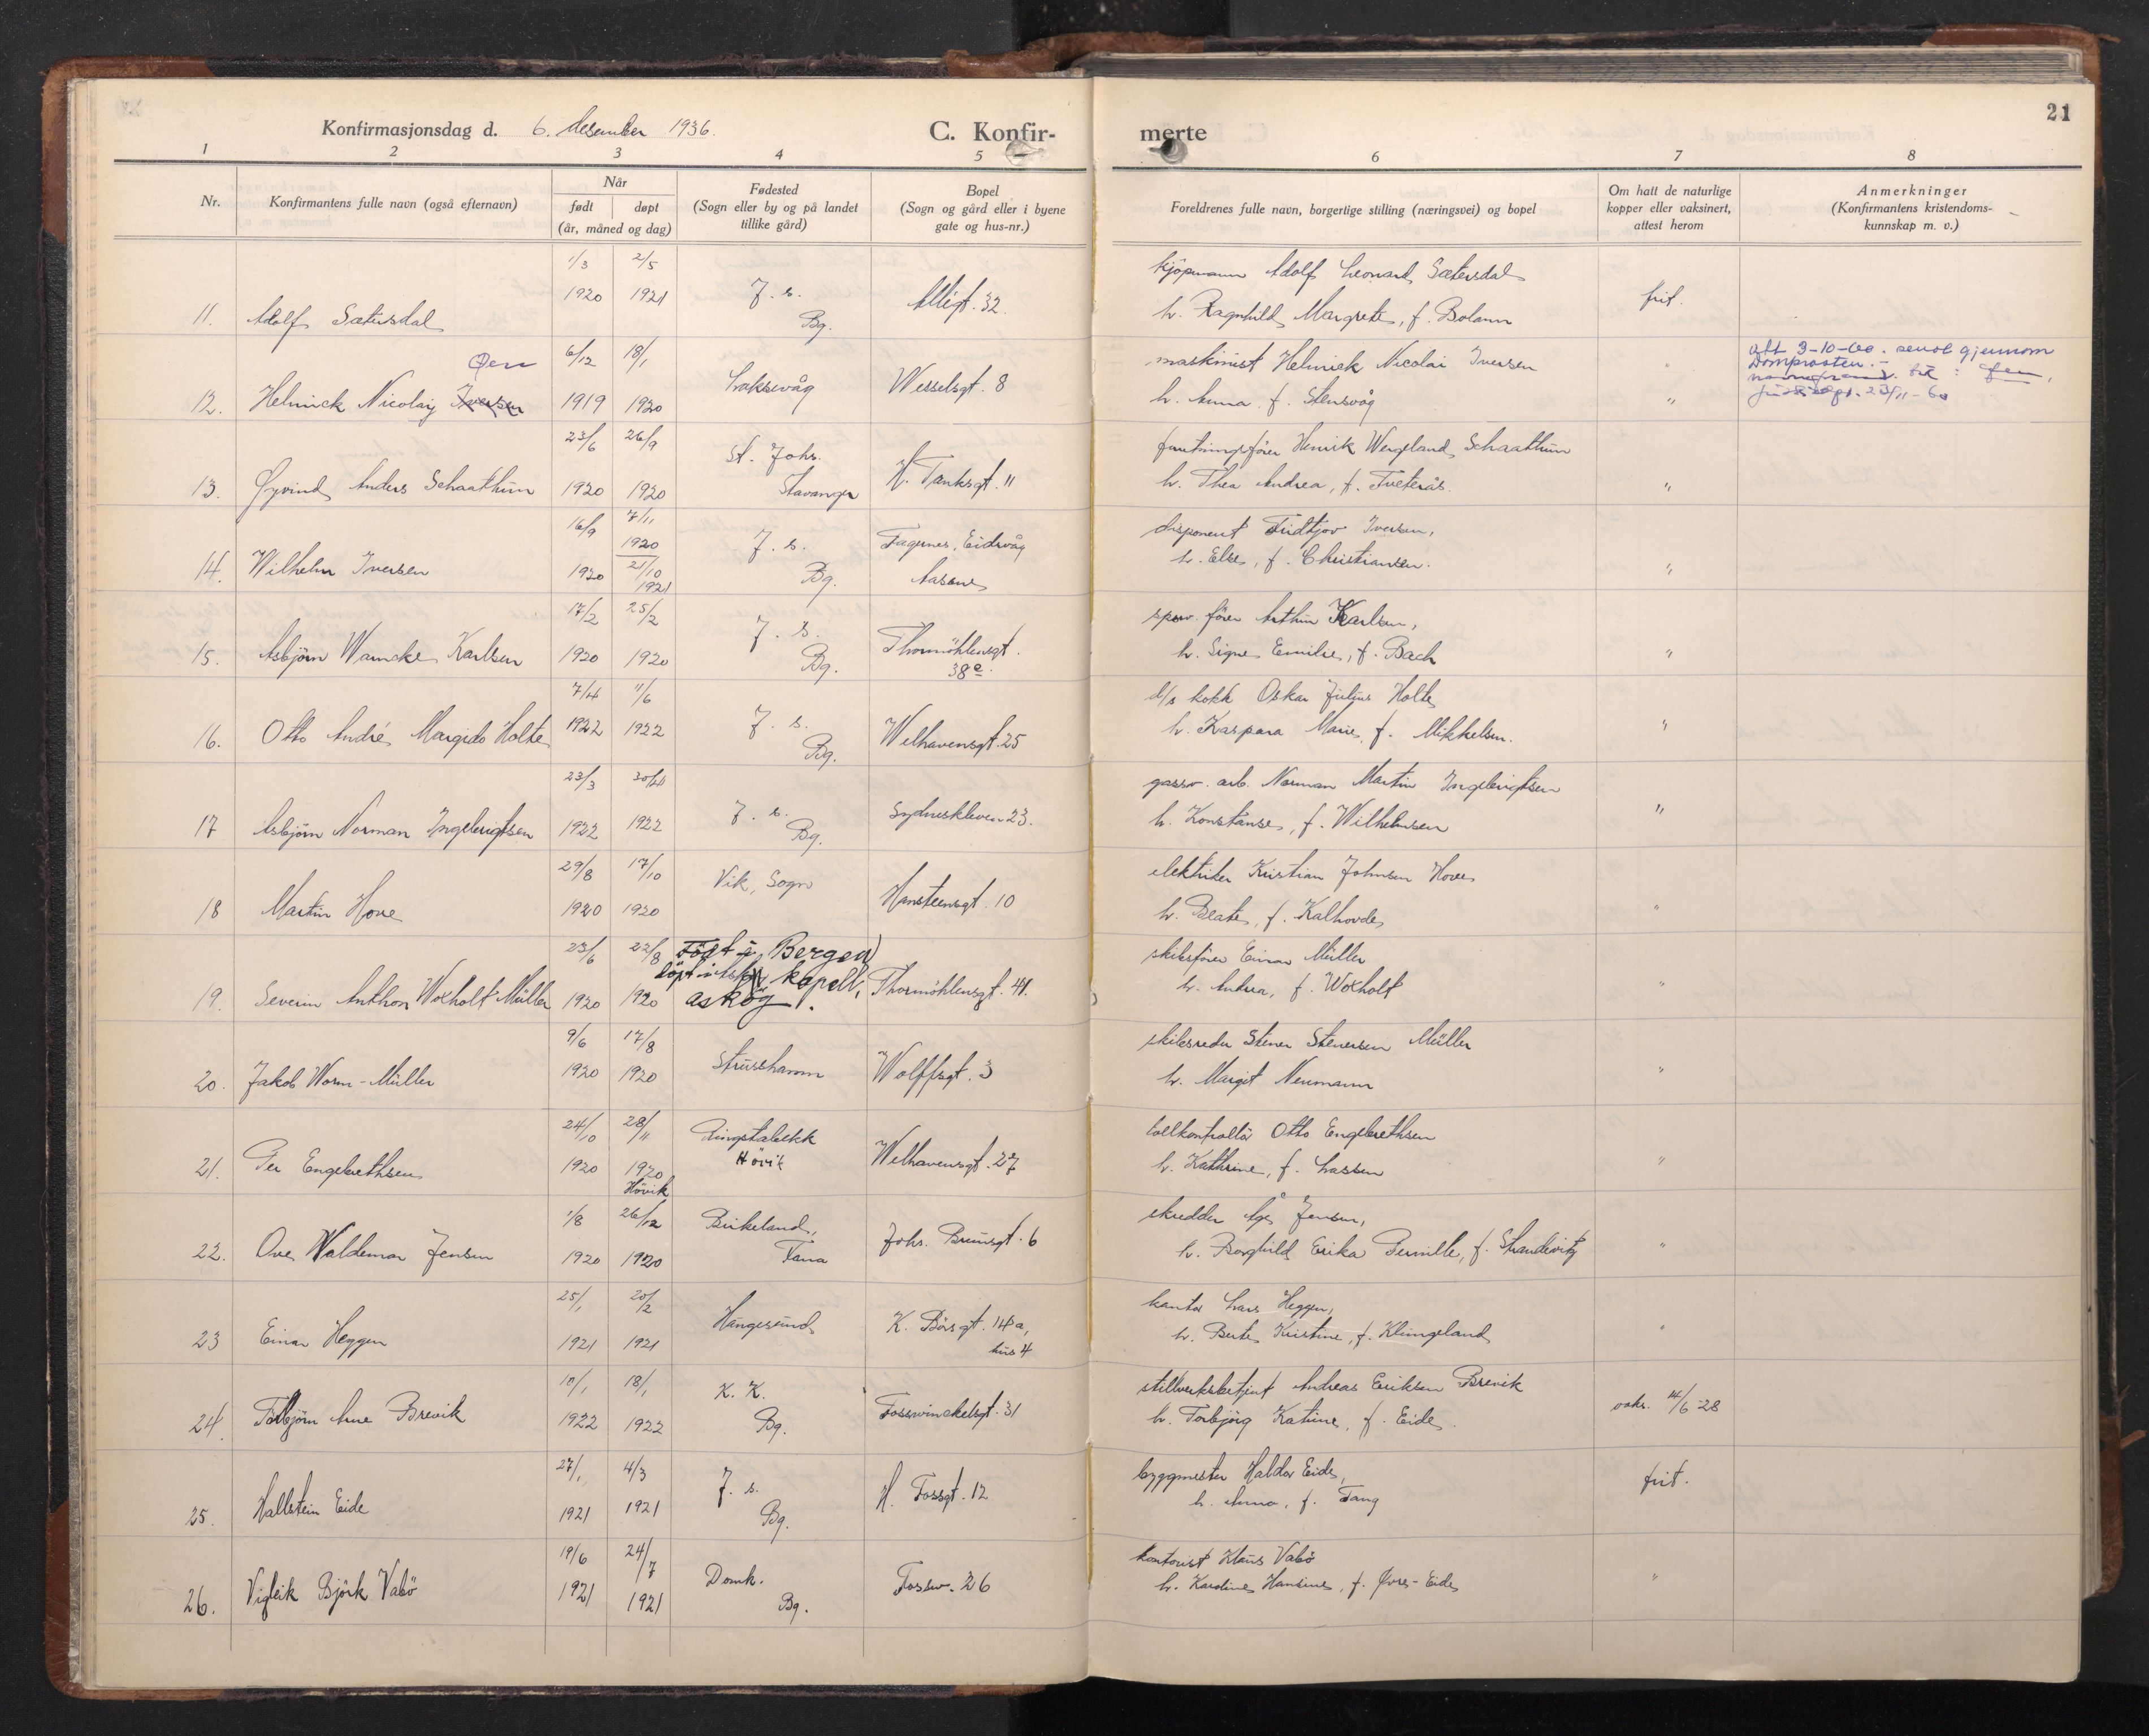 21
Konfirmasjonsdag d. 6. desember 1936.
C. Konfir-
merte
1 2 3 4 5 6 7 8
Nr.
Konfirmantens fulle navn (også efternavn)
Når
født døpt
(år, måned og dag)
Fødested
(Sogn eller by og på landet
tillike gård)
Bopel
(Sogn og gård eller i byene
gate og hus-nr.)
Foreldrenes fulle navn, borgerlige stilling (næringsvei) og bopel
Om hatt de naturlige
kopper eller vaksinert,
attest herom
Anmerkninger
(Konfirmantens kristendoms-
kunnskap m. v.)
1/3 2/5 kjöpmann Adolf Leonard Sætersdal
1920 1921 J. s. Alligt. 32 frit.
11. Adolf Sætersdal Bg. h. Ragnhild Margrete, f. Bolann
Øen 6/12 18/1 maskinist Helmick Nicolai Iversen " att 3-10-60. sendt gjennom
Domprosten.
12. Helmick Nicolay Iversen 1919 1920 Laksevåg Wesselsgt. 8 h. Anna f. Stensvåg " 23/11-60
23/6 26/9 St. Johs. Henrik Wergeland Schaathun
13. Øyvind Anders Schaathun 1920 1920 Stavanger H. Tanksgt. 11 h. Thea Andrea, f. Tveterås. "
16/9 7/11 1920 J. s. Fagernes, Eidsvåg disponent Fridtjov Iversen,
14. Wilhelm Iversen 1920 21/10 1921 Bg. Aasane h. Else, f. Christiansen. "
17/2 25/2 J. s. Thormöhlensgt. sporv. förer Arthur Karlsen,
15. Asbjörn Warncke Karlsen 1920 1920 Bg. 38e. h. Signe Emilie, f. Bach "
7/4 11/6 J. s. d/s kokk Oskar Julius Holte
16. Otto André Margido Holte 1922 1922 Bg. Welhavensgt. 25 h. Kaspara Marie f. Mikkelsen. "
23/3 30/4 J. s. gassv. arb. Norman Martin Ingebrigtsen
17 Asbjörn Norman Ingebrigtsen 1922 1922 Bg. Sydneskleven 23. h. Konstanse, f. Wilhelmsen "
29/8 17/10 Vik, Sogn elektriker Kristian Johnsen Hove
18 Martin Hove 1920 1920 Hansteensgt. 10 h. Beate, f. Kalhovde "
23/6 22/8 Födt i Bergen skibsförer Einar Müller
19. Severin Anthon Woxholt Müller 1920 1920 kapell, askög. Thormöhlensgt. 41. h. Andrea, f. Woxholt "
9/6 17/8 skibsreder Stener Stenersen Müller
20. Jakob Worm-Müller 1920 1920 Strusshamn Wolffsgt. 3 h. Margit Neumann "
24/10 28/11 Ringstabekk tollkontrollör Otto Engebrethsen
21. Per Engebrethsen 1920 1920 Hövik Hövik Welhavensgt. 27 h. Kathrine, f. Lassen "
1/8 26/12 Birkeland, skredder Åge Jensen,
22. Ove Waldemar Jensen 1920 1920 Fana Johs. Brunsgt. 6 h. Borghild Erika Pernille, f. Strandevitz "
25/1 20/2 kantor Lars Heggen,
23 Einar Heggen 1921 1921 Haugesund K. Börsgt. 14a, hus 4 h. Berte Kristine, f. Klungeland "
10/1 18/1 K. K. stillverksbetjent Andreas Eriksen Brevik
24. Torbjörn Arne Brevik 1922 1922 Bg. Fosswinckelsgt. 31 h. Torbjörg Katrine, f. Eide. vaks. 14/6-28
27/1 4/3 J. s. byggmester Haldor Eide,
25. Hallstein Eide 1921 1921 Bg. H. Fossgt. 12 h. Anna, f. Tang frit.
19/6 24/7 Domk. kontorist Klaus Vabö
26. Vigleik Björk Vabö 1921 1921 Bg. Fossw. 26 h. Karoline Hansine, f. Øvre-Eide "